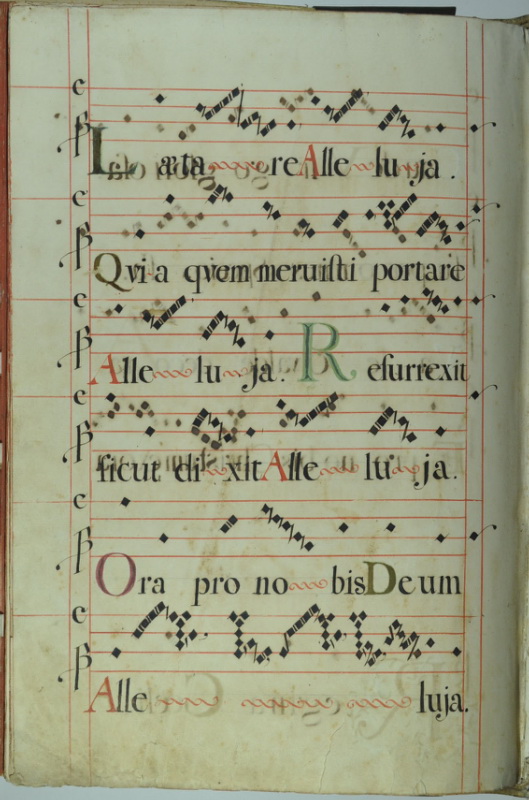 Læta re Alle lu ja.
Qvi a qvem meruisti portare
Alle lu ja. Resurrexit
sicut di xit Alle lu ja.
Ora pro no bis Deum
Alle luja.